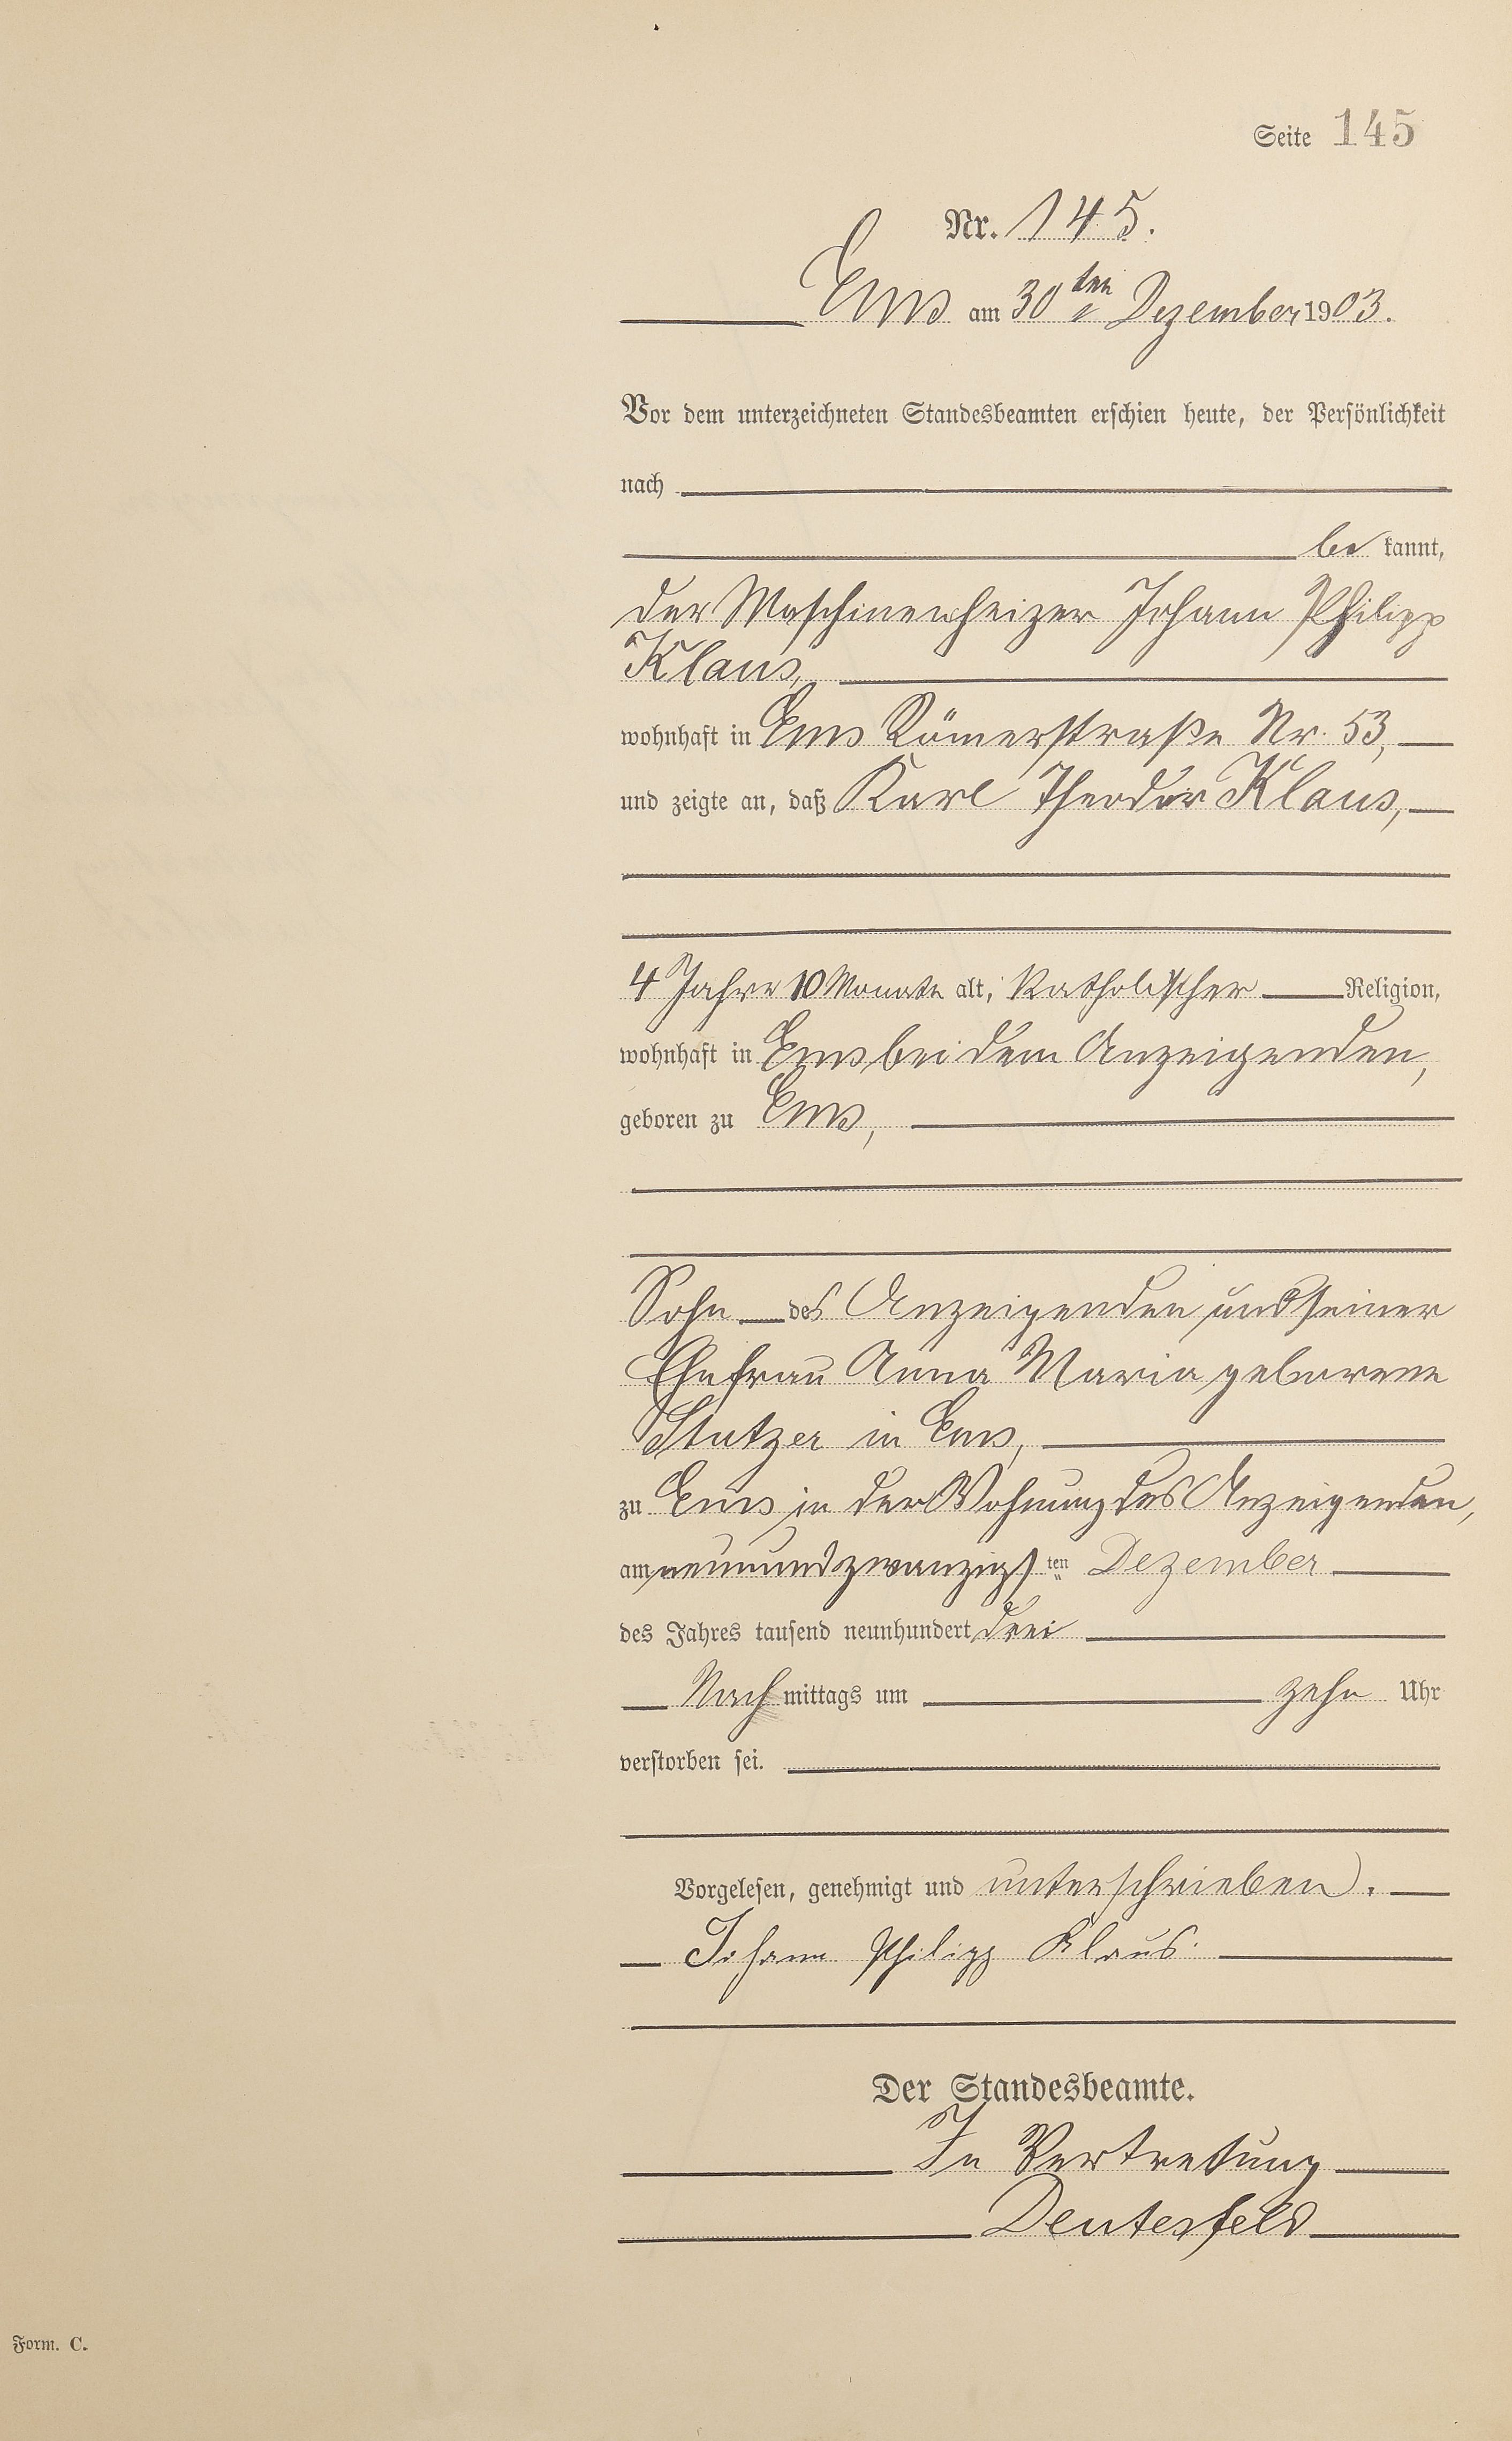 Seite 145
Nr. 145.
Ems am 30ten Dezember 1903.
Vor dem unterzeichneten Standesbeamten erschien heute, der Persönlichkeit
nach
be kannt,
der Maschinenheizer Johann Philipp
Klaus,
wohnhaft in Ems Römerstraße Nr. 53,
und zeigte an, daß Karl Theodor Klaus,
4 Jahre 10 Monate alt, katholischer Religion,
wohnhaft in Ems bei dem Anzeigenden,
geboren zu Ems,
Sohn des Anzeigenden und seiner
Ehefrau Anna Maria geborene
Stutzer in Ems,
zu Ems in der Wohnung des Anzeigenden,
am neunundzwanzigsten Dezember
des Jahres tausend neunhundert drei
Nach mittags um zehn Uhr
verstorben sei.
Vorgelesen, genehmigt und unterschrieben.
Johann Philipp Klaus.
Der Standesbeamte.
In Vertretung
Deutesfeld
Form. C.